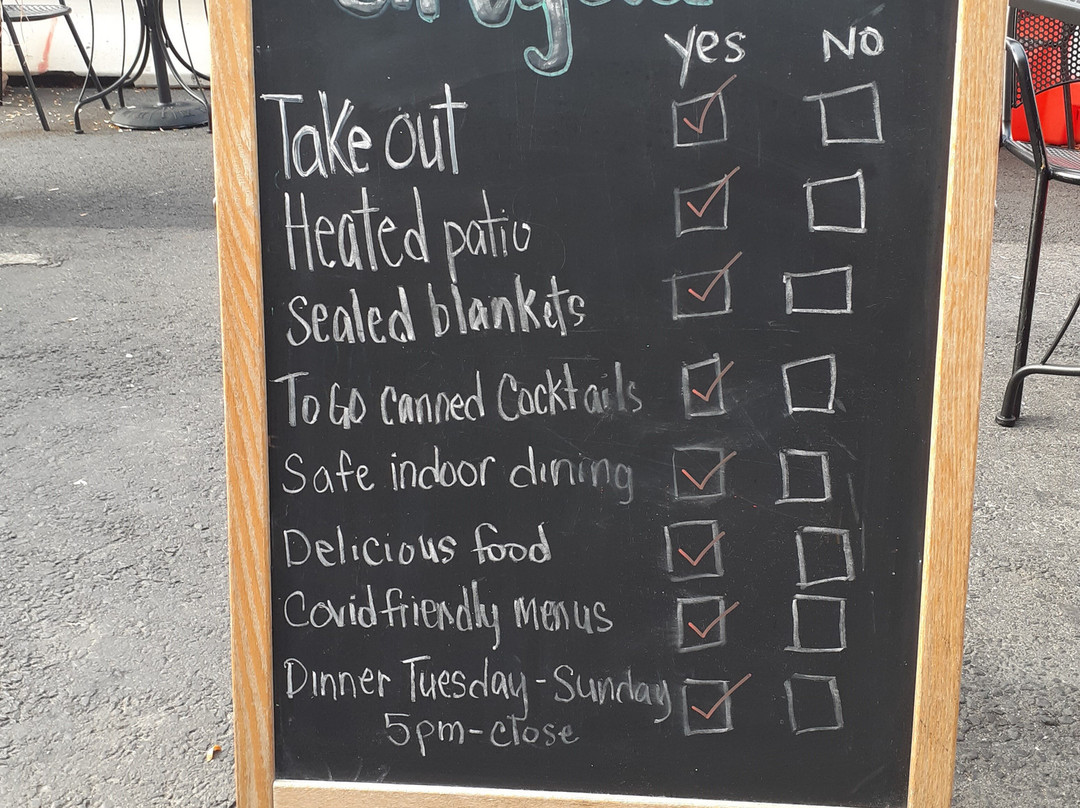 yes NO
Take out
Heated patio
Sealed blankets
To Go Canned Cocktails
Safe indoor dining
Delicious food
Covid friendly Menus
Dinner Tuesday - Sunday
5pm - close